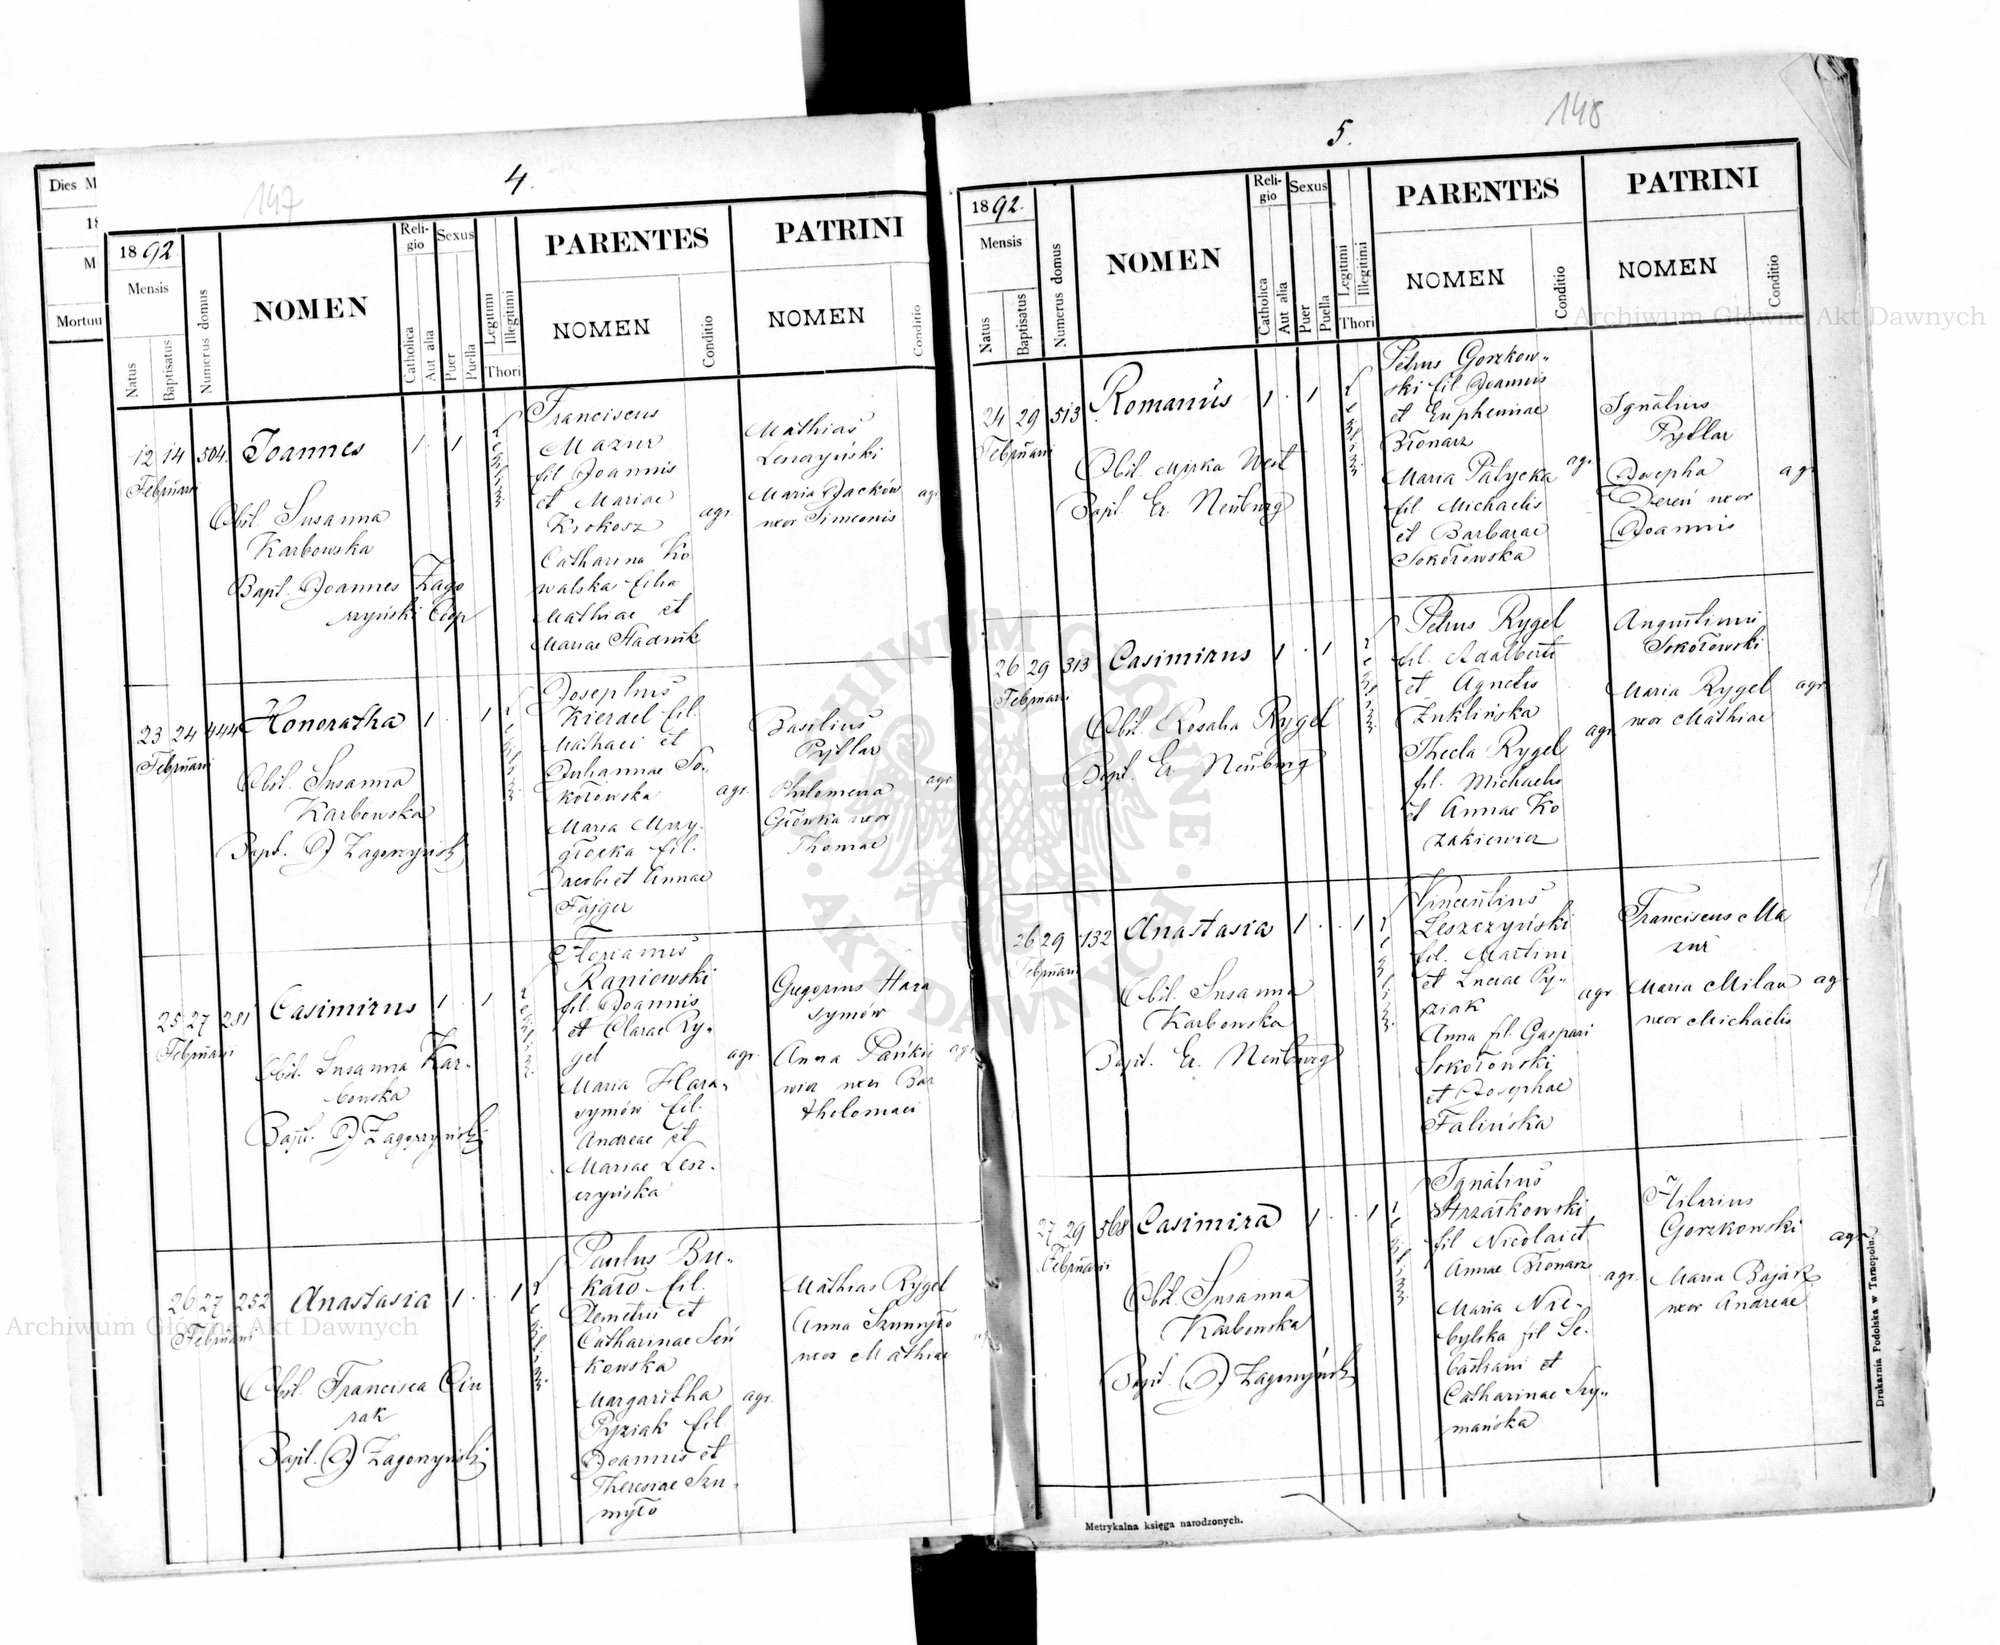 Dies M
18
M
Mortuu
147
4.
18 92.
Mensis
Natus
Baptisatus
Numerus domus
NOMEN
Reli-
gio
Catholica
Aut alia
Sexus
Puer
Puella
Legitimi
Illegitimi
Thori
PARENTES
NOMEN
Conditio
PATRINI
NOMEN
Conditio
12 14 504. Joannes 1. 1
Februarii
Obst. Susanna
Karbowska
Bapt. Joannes Zago
rzyński Coop
Franciscus
Mazur
fil Joannis
et Mariae
Krokosz
Catharina Ko
walska filia
Mathiae et
Mariae Hadnik
agr.
Mathias
Leszczyński
Maria Jacków
uxor Simeonis
agr
23 24 444 Honoratha 1. 1
Februarii
Obst. Susanna
Karbowska
Bapt. J Zagorzyński
Josephus
Kierdel fil.
Mathaei et
Juliannae So-
kołowska
Maria Mrzy-
głocka fil.
Jacobi et Annae
Fajger
agr.
Basilius
Pytlar
Philomena
Główka uxor
Thomae
agr
25 27 281 Casimirus 1. 1
Februarii
Obst. Susanna Kar-
bowska
Bapt. J Zagorzyński
Florianus
Raniowski
fil. Joannis
et Clarae Ry-
gel
Maria Hara-
symów fil.
Andreae et
Mariae Lesz-
czyńska
agr.
Gregorius Hara
symów
Anna Pańkie
wicz uxor Bar
tholomaei
agr
26 27 252 Anastasia 1. . 1
Februarii
Obst. Francisca Ciu
rak
Bapt. J Zagorzyński
Paulus Bu-
kało fil.
Demetrii et
Catharinae Seń
kowska
Margaritha
Pyziak fil
Joannis et
Theresiae Szu-
myło
agr.
Mathias Rygel
Anna Szumyło
uxor Mathiae
148
5.
18 92.
Mensis
Natus
Baptisatus
Numerus domus
NOMEN
Reli-
gio
Catholica
Aut alia
Sexus
Puer
Puella
Legitimi
Illegitimi
Thori
PARENTES
NOMEN
Conditio
PATRINI
NOMEN
Conditio
24 29 513 Romanus 1. 1
Februarii
Obst. Mirka Weit
Bapt. Er. Neuburg
Petrus Gorzkow-
ski fil Joannis
et Euphemiae
Błonarz
Maria Patycka
fil. Michaelis
et Barbarae
Sokołowska
agr.
Ignatius
Pytlar
Josepha
Dereń uxor
Joannis
agr
26 29 313 Casimirus 1. 1
Februarii
Obst. Rosalia Rygel
Bapt. Er. Neuburg
Petrus Rygel
fil. Adalberti
et Agnetis
Żuklińska
Thecla Rygel
fil. Michaelis
et Annae Ko
zakiewicz
agr
Augustinus
Sokołowski
Maria Rygel
uxor Mathiae
agr
26 29 132 Anastasia 1. . 1
Februarii
Obst. Susanna
Karbowska
Bapt. Er. Neuburg
Vincentius
Leszczyński
fil. Martini
et Luciae Py-
ziak
Anna fil. Gaspari
Sokołowski
et Josephae
Falińska
agr
Franciscus Ma
zur
Maria Milan
uxor Michaelis
agr
27 29 568 Casimira 1. . 1
Februarii
Obst. Susanna
Karbowska
Bapt. J Zagorzyński
Ignatius
Strzałkowski
fil Nicolai et
Annae Błonarz
Maria Nie-
bylska fil Se-
bastiani et
Catharinae Szy-
mańska
agr.
Hilarius
Gorzkowski
Maria Bajak
uxor Andreae
agr
Metrykalna księga narodzonych.
Drukarnia Podolska w Tarnopolu.
Archiwum Główne Akt Dawnych
Archiwum Główne Akt Dawnych
ARCHIWUM GŁÓWNE · AKT DAWNYCH ·